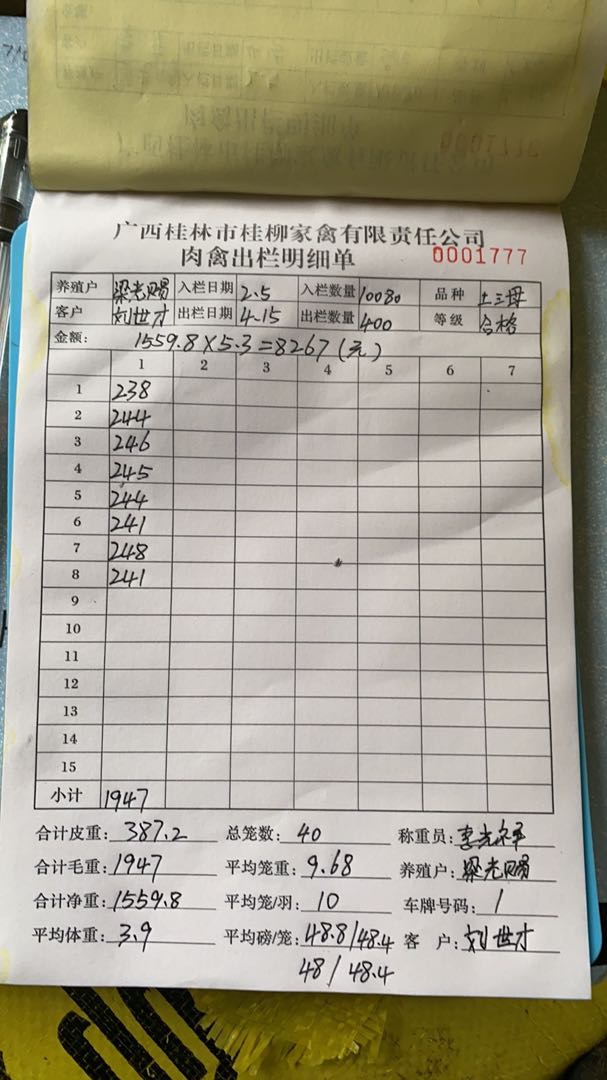 广西桂林市桂柳家禽有限责任公司
肉禽出栏明细单 0001777
养殖户 梁光赐 入栏日期 2.5 入栏数量 10080 品种 土三母
客户 刘世才 出栏日期 4.15 出栏数量 400 等级 合格
金额: 1559.8×5.3=8267(元)
1 2 3 4 5 6 7
1 238
2 244
3 246
4 245
5 244
6 241
7 248
8 241
9
10
11
12
13
14
15
小计 1947
合计皮重: 387.2 总笼数: 40 称重员: 李光
合计毛重: 1947 平均笼重: 9.68 养殖户: 梁光赐
合计净重: 1559.8 平均笼/羽: 10 车牌号码: 1
平均体重: 3.9 平均磅/笼: 48.8/48.4 客 户: 刘世才
48/48.4